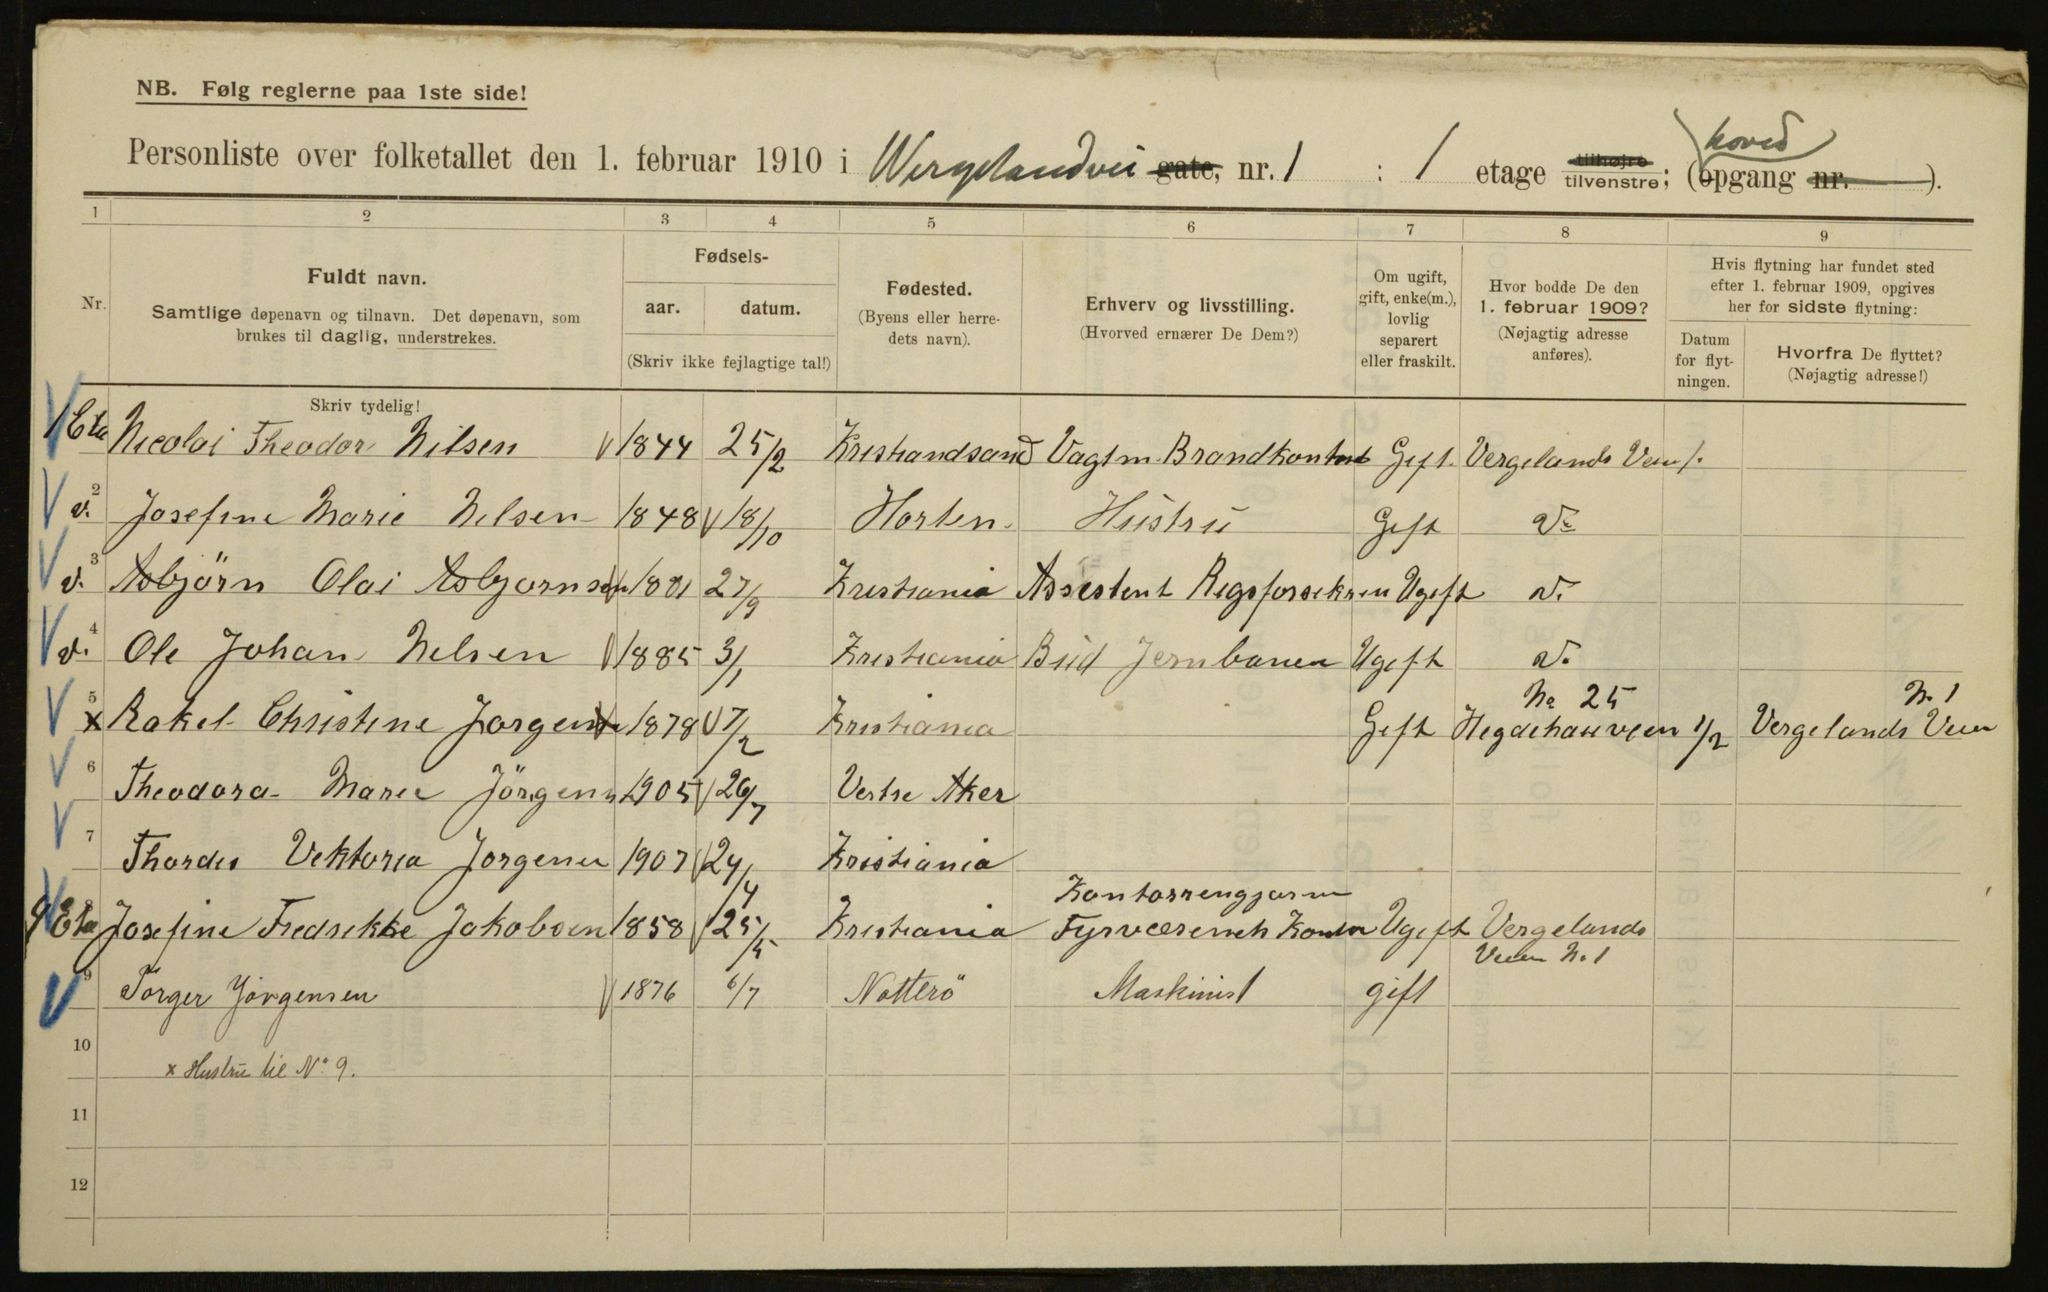 NB. Følg reglerne paa 1ste side!
hoved
Personliste over folketallet den 1. februar 1910 i Wergelandvei gate, nr. 1 : 1 etage tilhøjre tilvenstre; (opgang nr. ).
1 2 3 4 5 6 7 8 9
Nr.
Fuldt navn.
Samtlige døpenavn og tilnavn. Det døpenavn, som
brukes til daglig, understrekes.
Skriv tydelig!
Fødsels-
aar. datum.
(Skriv ikke fejlagtige tal!)
Fødested.
(Byens eller herre-
dets navn).
Erhverv og livsstilling.
(Hvorved ernærer De Dem?)
Om ugift,
gift, enke(m.),
lovlig
separert
eller fraskilt.
Hvor bodde De den
1. februar 1909?
(Nøjagtig adresse
anføres).
Hvis flytning har fundet sted
efter 1. februar 1909, opgives
her for sidste flytning:
Datum
for flyt-
ningen.
Hvorfra De flyttet?
(Nøjagtig adresse!)
1 Eta Nicolai Theodor Nilsen 1844 25/2 Kristiandsand Vagtm. Brandkontort Gift. Vergelands Veien 1.
2 v. Josefine Marie Nilsen 1848 18/10 Horten. Hustru Gift
3 v. Asbjörn Olai Asbjornsen 1881 27/9 Kristiania Assistent Rigsforsikren Ugift v.
4 v. Ole Johan Nelsen 1885 3/1 Kristiania Bud Jernbanen Ugift v.
No 25 N. 1
5 x Rakel Christine Jorgensen 1878 7/2 Kristiania Gift Hegdehauveien 1/2 Vergelands Veien
6 Theodora Marie Jörgens 1905 26/7 Vestre Aker
7 Thordis Viktoria Jorgensen 1907 24/4 Kristiania
Kontorrengjören
8 Eta Josefine Fredrikke Jakobsen 1858 25/5 Kristiania Fyrvæsenets Kontor Ugift Vergelands
Veien N. 1
9 Torger Jørgensen 1876 6/7 Nötterö Maskinist gift
10
x Hustru til No 9.
11
12